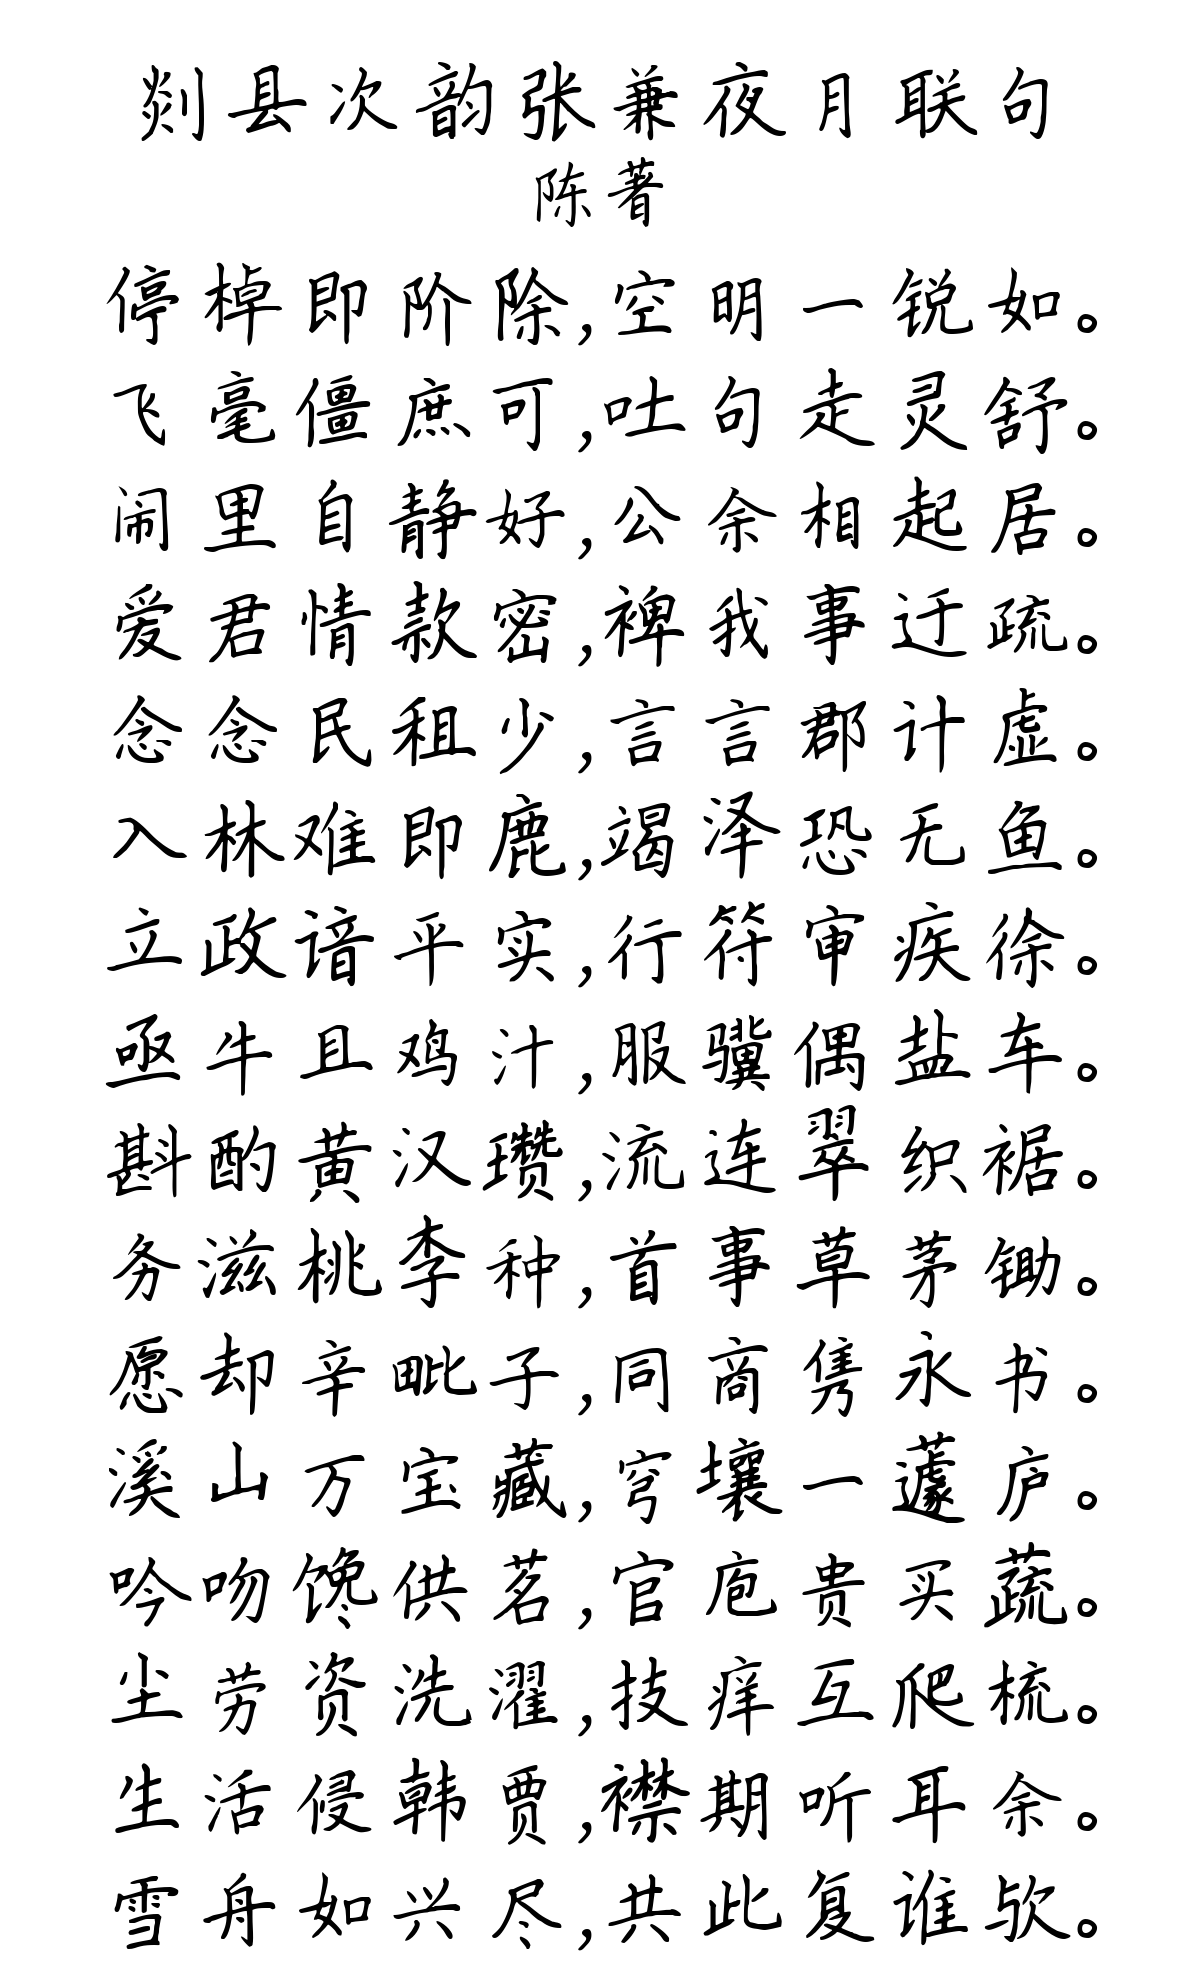 剡县次韵张兼夜月联句
陈著
停棹即阶除,空明一锐如。
飞毫僵庶可,吐句走灵舒。
闹里自静好,公余相起居。
爱君情款密,裨我事迂疏。
念念民租少,言言郡计虚。
入林难即鹿,竭泽恐无鱼。
立政谙平实,行符审疾徐。
亟牛且鸡汁,服骥偶盐车。
斟酌黄汉瓒,流连翠织裾。
务滋桃李种,首事草茅锄。
愿却辛毗子,同商隽永书。
溪山万宝藏,穹壤一蘧庐。
吟吻馋供茗,官庖贵买蔬。
尘劳资洗濯,技痒互爬梳。
生活侵韩贾,襟期听耳余。
雪舟如兴尽,共此复谁欤。